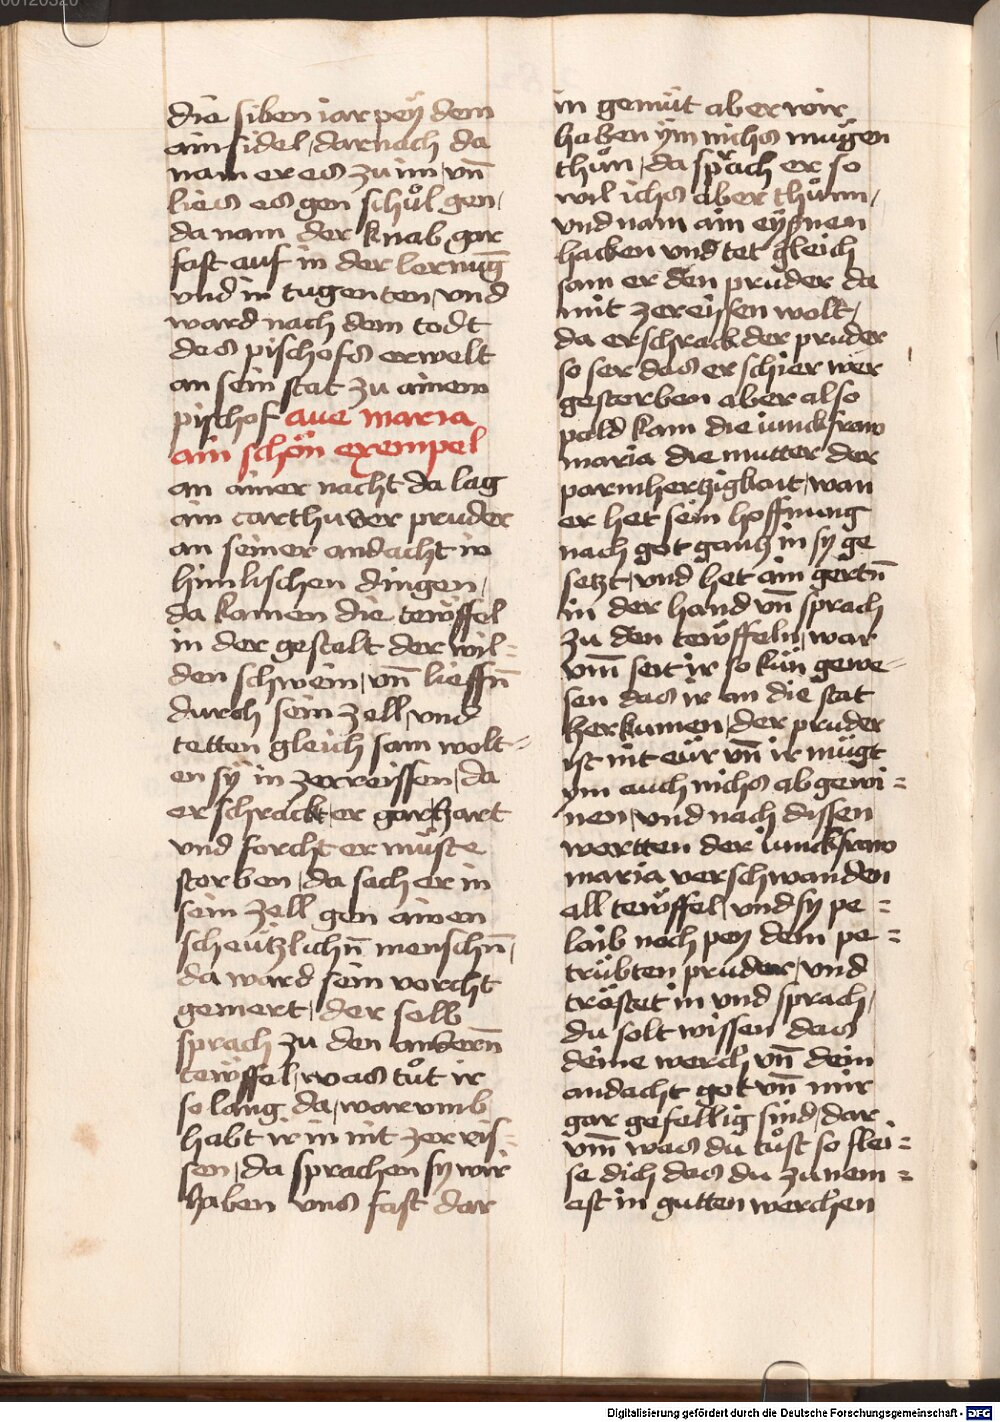 die siben iar peÿ dem
ainsidel, darnach da
nam er es zu im, vn̄
lies es gen schůl gen,
da nam der knab gar
fast auf in der lernuḡ
vnd in tugenten, vnd
ward nach dem todt
des pischofs erwelt
an sein stat zu ainem
pischof aue maria
ain schön exempel
an ainer nacht da lag
ain carthuser pruder
an seiner andacht in
himlischen dingen,
da komen die tewffel
in der gestalt der wil=
den schwein, vn̄ lieffn̄
durch sein zell, vnd
tetten gleich sam wolt=
en sÿ in zerreissen, da
erschrackt er gar hart
vnd forcht er müste
storben, da sach er in
sein zell gen ainen
scheützlichn̄ menschn̄,
da ward sein vorcht
gemert, der selb
sprach zu den andern̄
tewffel, was tůt ir
so lang da, war vmb
habt ir in nit zerris=
sen, da sprachen sy wir
haben vns fast dar
in gemüt aber wir
haben ÿm nichs mügen
thůn, da sprach er so
wil ichs aber thůnn,
vnd nam ain eÿsnen
hacken vnd tet gleich
sam er den pruder da
mit zereissen wolt,
da erschrack der pruder
so ser das er schier wer
gestorben aber also
pald kam die iunckfraw
maria die mutter der
parmhertzigkait, wan
er het sein hoffnung
nach got gantz in sy ge
setzt, vnd het ain gertn̄
in der hand vn̄ sprach
zu den tewffeln, war
vm̄ seit ir so kün gewe=
sen das ir an die stat
herkumen, der pruder
ist nit eür vn̄ ir mügt
ym auch nichs abgewi=
nen, vnd nach dissen
wortten der iunckfraw
maria verschwanden
all tewffel, vnd sy pe=
laib noch pey dem pe=
trübten pruder, vnd
tröstet in vnd sprach,
du solt wissen das
deine werch vn̄ dein
andacht got vn̄ mir
gar gefellig sind, dar
vm̄ was du tůst so flei=
se dich das du zu nem=
est in gutten werchen
Digitalisierung gefördert durch die Deutsche Forschungsgemeinschaft - DFG